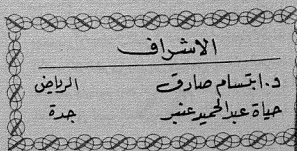 الاشراف
د. ابتسام صادق الرياض
حياة عبدالحميد عنبر جدة